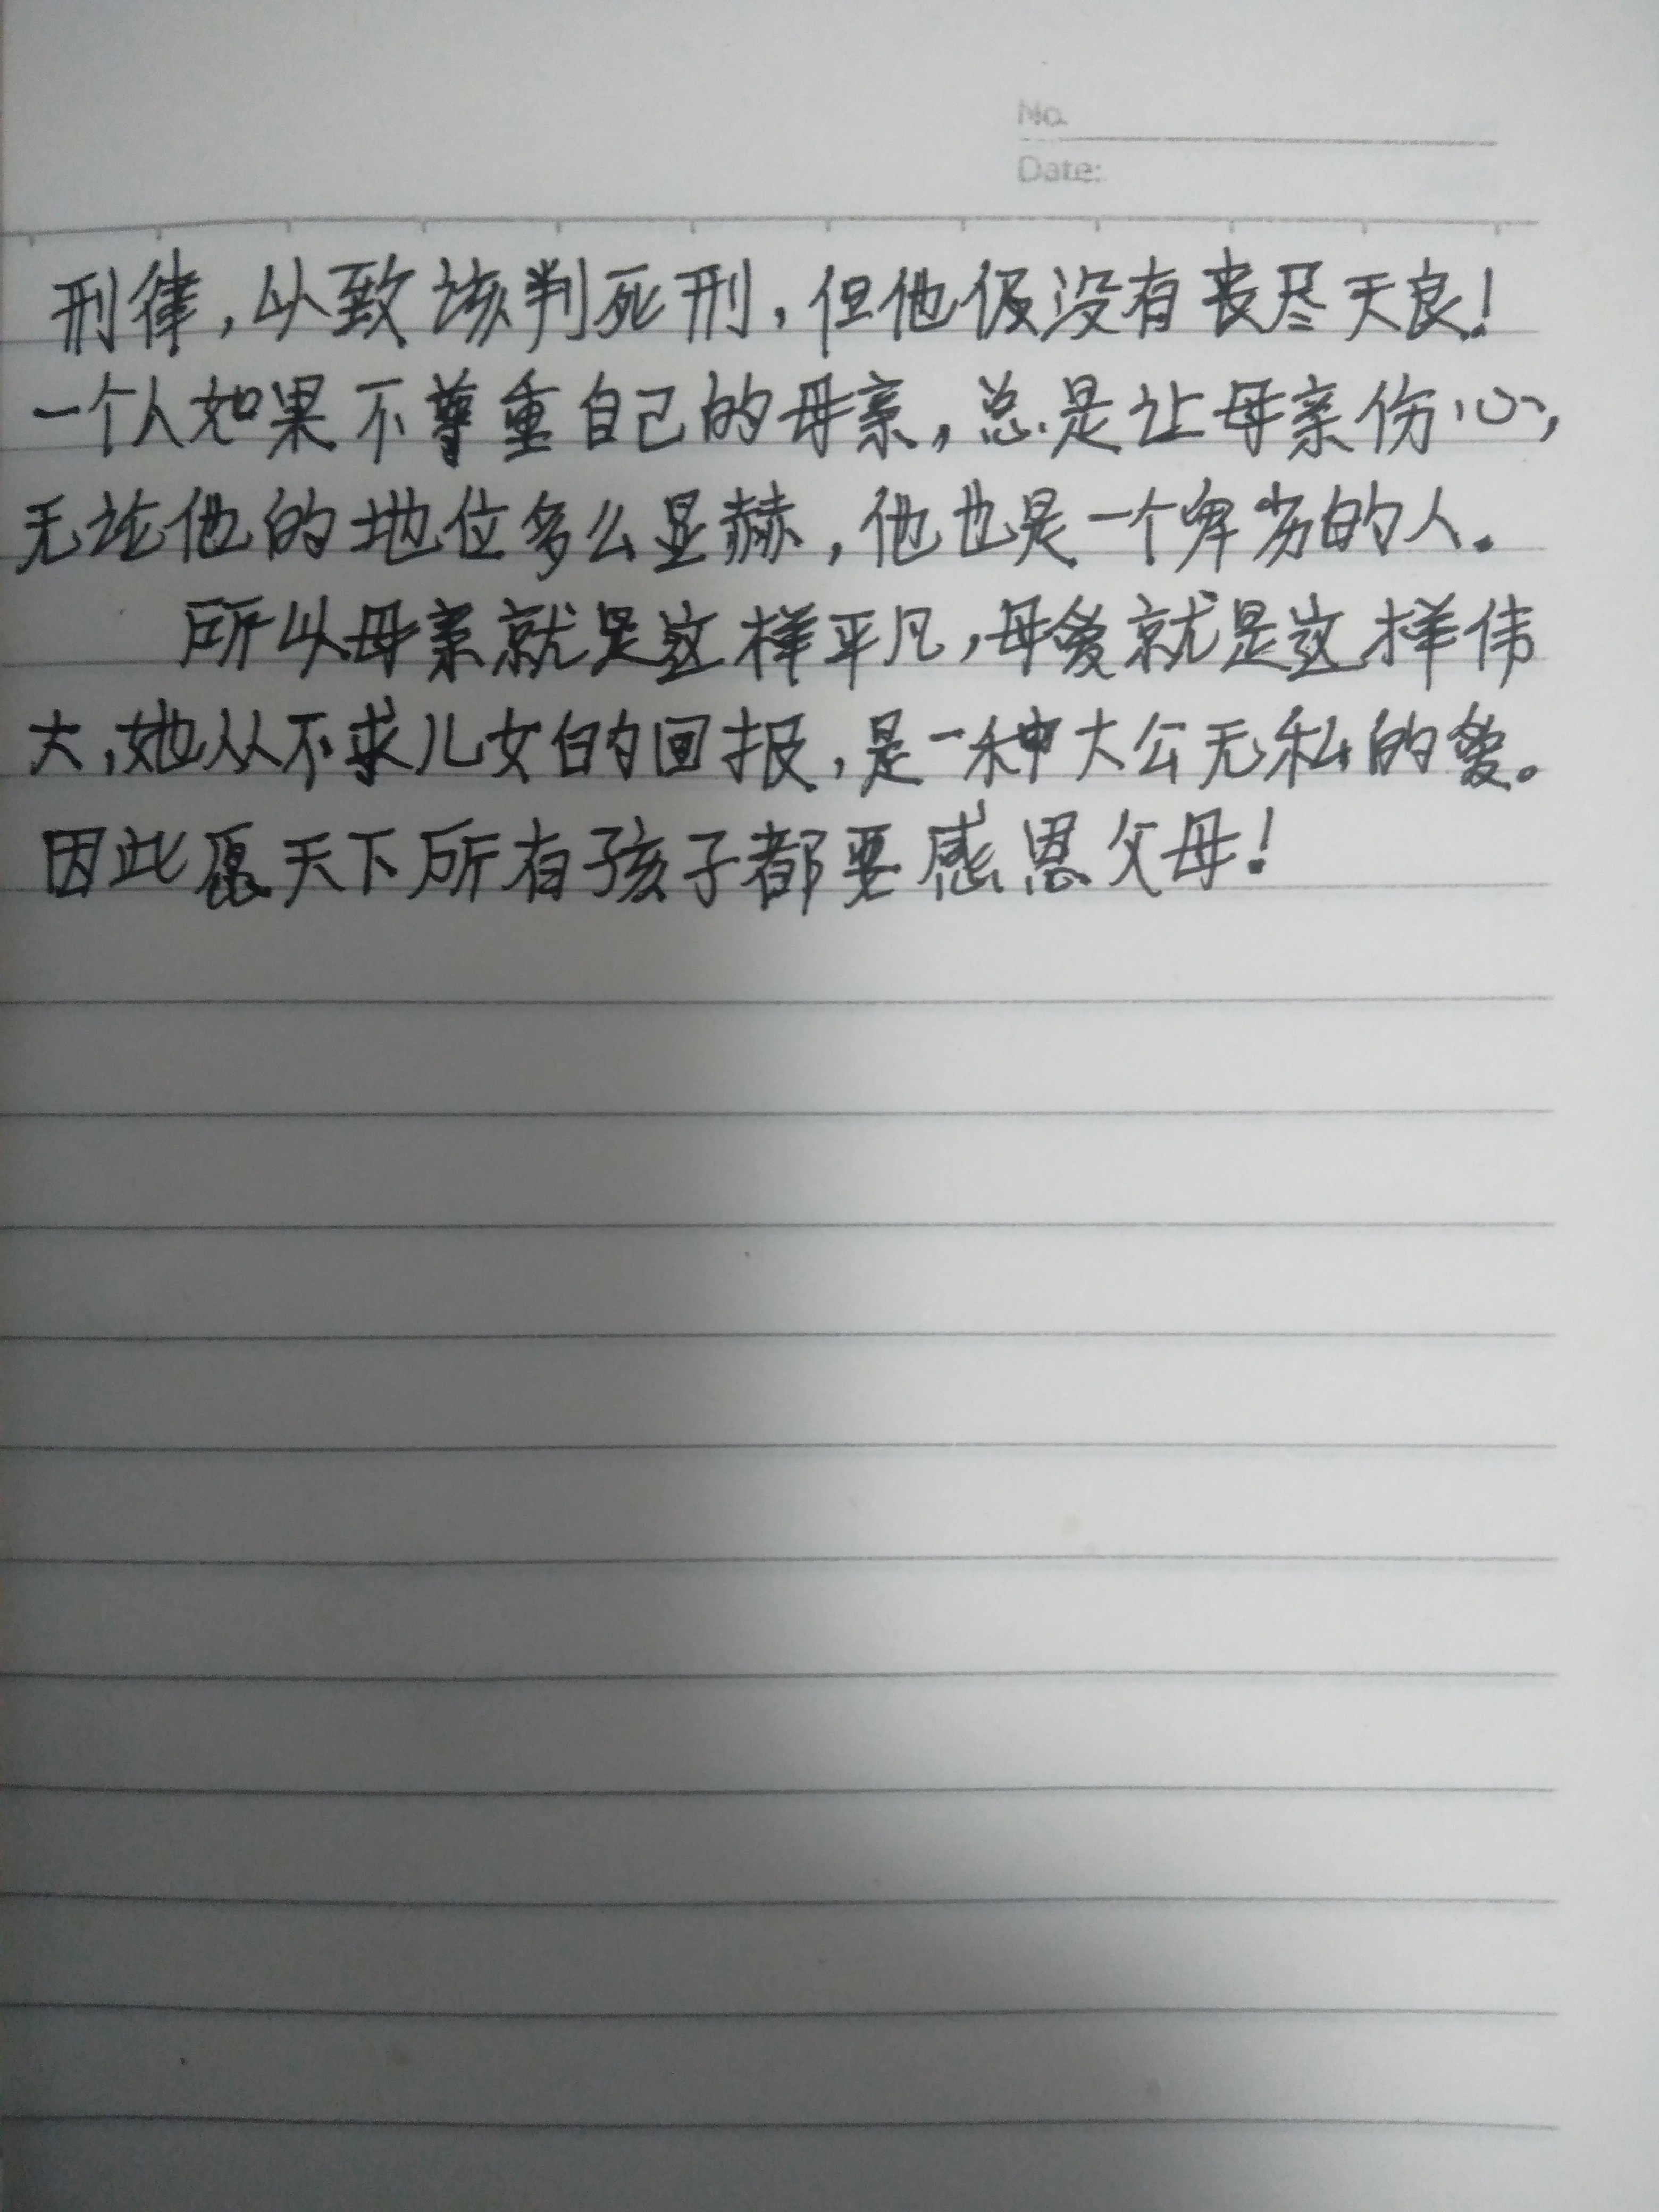 No.
Date:
刑律,以致该判死刑,但他仍没有丧尽天良!
一个人如果不尊重自己的母亲,总是让母亲伤心,
无论他的地位多么显赫,他也是一个卑劣的人。
所以母亲就是这样平凡,母爱就是这样伟
大,她从不求儿女的回报,是一种大公无私的爱。
因此愿天下所有孩子都要感恩父母!